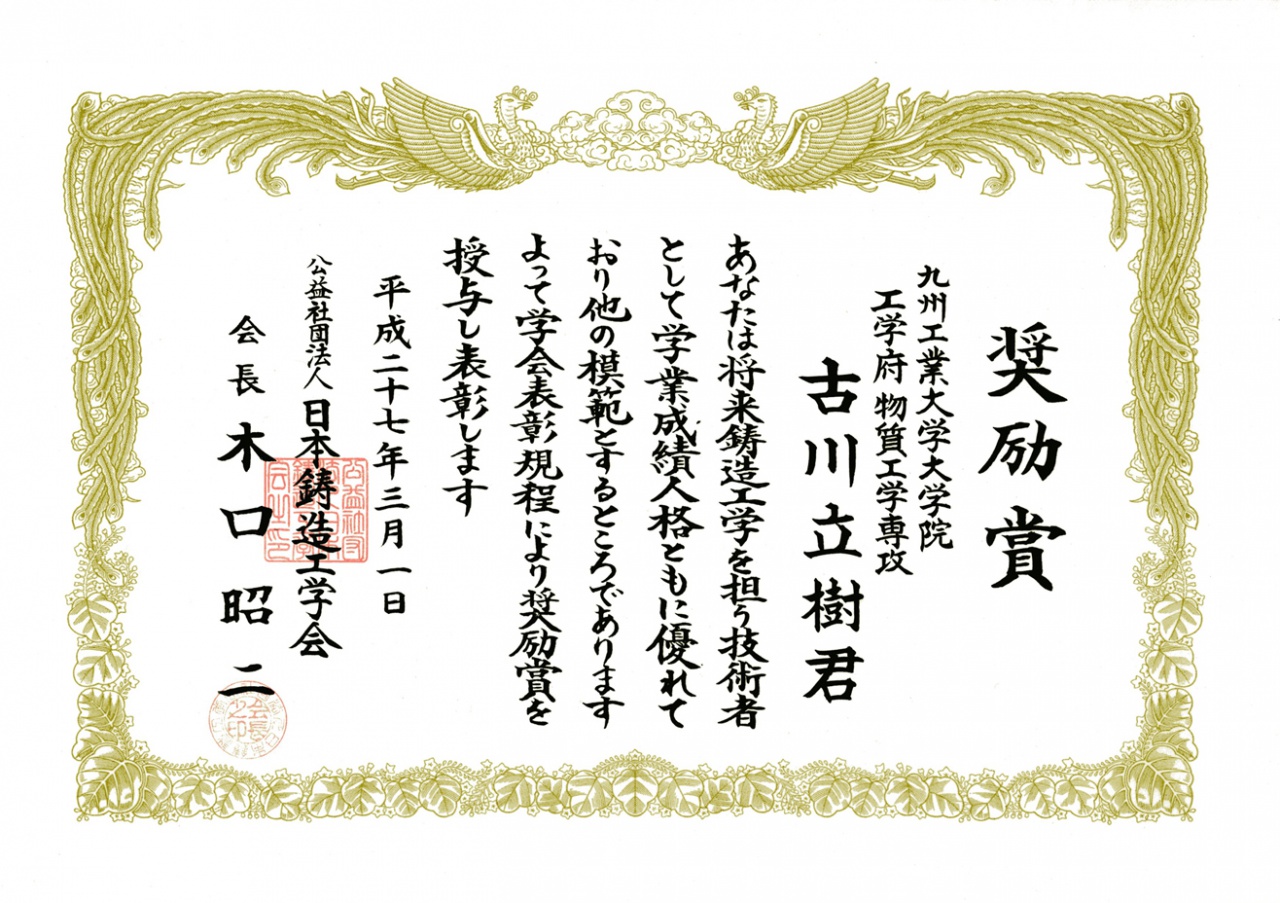 奨励賞
九州工業大学大学院
工学府 物質工学専攻
古川立樹君
あなたは将来鋳造工学を担う技術者
として学業成績人格ともに優れて
おり他の模範とするところであります
よって学会表彰規程により奨励賞を
授与し表彰します
平成二十七年三月一日
公益社団法人 日本鋳造工学会
会長 木口昭二
会長之印